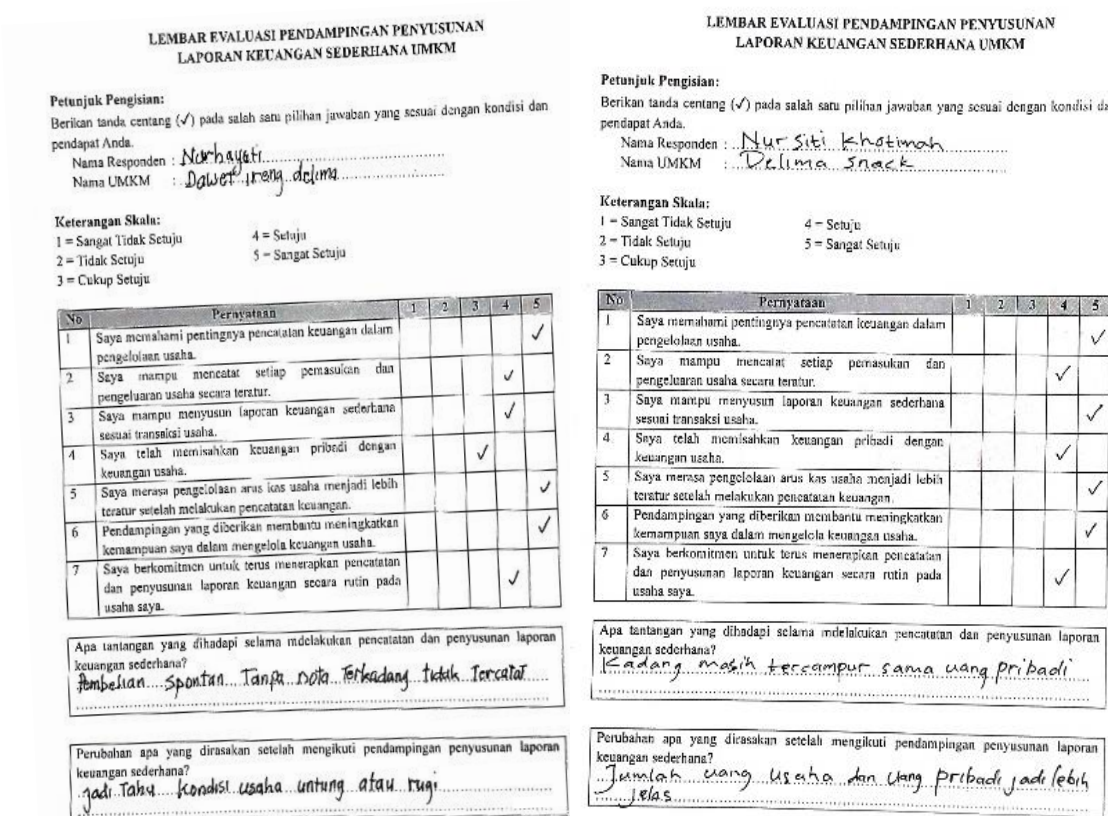 LEMBAR EVALUASI PENDAMPINGAN PENYUSUNAN
LAPORAN KEUANGAN SEDERHANA UMKM
Petunjuk Pengisian:
Berikan tanda centang (✓) pada salah satu pilihan jawaban yang sesuai dengan kondisi dan
pendapat Anda.
Nama Responden : Nurhayati
Nama UMKM : Dawet ireng delima
Keterangan Skala:
1 = Sangat Tidak Setuju 4 = Setuju
2 = Tidak Setuju 5 = Sangat Setuju
3 = Cukup Setuju
No Pernyataan 1 2 3 4 5
1 Saya memahami pentingnya pencatatan keuangan dalam ✓
pengelolaan usaha.
2 Saya mampu mencatat setiap pemasukan dan ✓
pengeluaran usaha secara teratur.
3 Saya mampu menyusun laporan keuangan sederhana ✓
sesuai transaksi usaha.
4 Saya telah memisahkan keuangan pribadi dengan ✓
keuangan usaha.
5 Saya merasa pengelolaan arus kas usaha menjadi lebih ✓
teratur setelah melakukan pencatatan keuangan.
6 Pendampingan yang diberikan membantu meningkatkan ✓
kemampuan saya dalam mengelola keuangan usaha.
7 Saya berkomitmen untuk terus menerapkan pencatatan ✓
dan penyusunan laporan keuangan secara rutin pada
usaha saya.
Apa tantangan yang dihadapi selama mdelakukan pencatatan dan penyusunan laporan
keuangan sederhana?
Pembelian spontan Tanpa nota Terkadang tidak Tercatat
Perubahan apa yang dirasakan setelah mengikuti pendampingan penyusunan laporan
keuangan sederhana?
jadi Tahu kondisi usaha untung atau rugi
LEMBAR EVALUASI PENDAMPINGAN PENYUSUNAN
LAPORAN KEUANGAN SEDERHANA UMKM
Petunjuk Pengisian:
Berikan tanda centang (✓) pada salah satu pilihan jawaban yang sesuai dengan kondisi da
pendapat Anda.
Nama Responden : Nur Siti Khotimah
Nama UMKM : Delima Snack
Keterangan Skala:
1 = Sangat Tidak Setuju 4 = Setuju
2 = Tidak Setuju 5 = Sangat Setuju
3 = Cukup Setuju
No Pernyataan 1 2 3 4 5
1 Saya memahami pentingnya pencatatan keuangan dalam ✓
pengelolaan usaha.
2 Saya mampu mencatat setiap pemasukan dan ✓
pengeluaran usaha secara teratur.
3 Saya mampu menyusun laporan keuangan sederhana ✓
sesuai transaksi usaha.
4 Saya telah memisahkan keuangan pribadi dengan ✓
keuangan usaha.
5 Saya merasa pengelolaan arus kas usaha menjadi lebih ✓
teratur setelah melakukan pencatatan keuangan.
6 Pendampingan yang diberikan membantu meningkatkan ✓
kemampuan saya dalam mengelola keuangan usaha.
7 Saya berkomitmen untuk terus menerapkan pencatatan ✓
dan penyusunan laporan keuangan secara rutin pada
usaha saya.
Apa tantangan yang dihadapi selama mdelakukan pencatatan dan penyusunan laporan
keuangan sederhana?
Kadang masih tercampur sama uang pribadi
Perubahan apa yang dirasakan setelah mengikuti pendampingan penyusunan laporan
keuangan sederhana?
Jumlah uang usaha dan uang pribadi jadi lebih
jelas